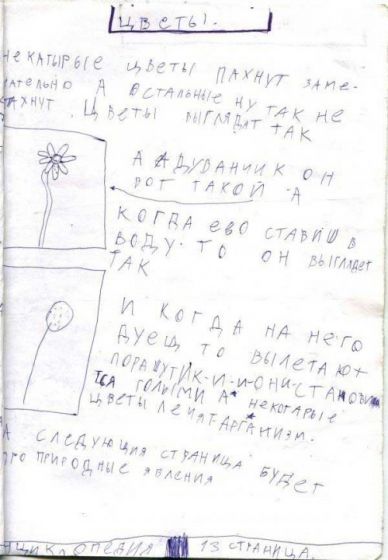 ЦВЕТЫ.
НЕКАТЫРЫЕ ЦВЕТЫ ПАХНУТ ЗАМЕ-
ЧАТЕЛЬНО А ОСТАЛЬНЫЕ НУ ТАК НЕ
ПАХНУТ. ЦВЕТЫ ВЫГЛЯДЯТ ТАК
А АДУВАНЧИК ОН
ВОТ ТАКОЙ А
КОГДА ЕВО СТАВИШ В
ВОДУ ТО ОН ВЫГЛЯДЕТ
ТАК
И КОГДА НА НЕГО
ДУЕЩ ТО ВЫЛЕТАЮТ
ПОРАШУТИК-И-И-ОНИ-СТАНОВИ
ТСА ГОЛЫМИ А НЕКОТАРЫЕ
ЦВЕТЫ ЛЕЧАТ АРГАНИЗМ.
А СЛЕДУЮЩИЯ СТРАНИЦА БУДЕТ
ПРО ПРИРОДНЫЕ ЯВЛЕНИЯ
НЦИКЛОПЕДИЯ 13 СТРАНИЦА.